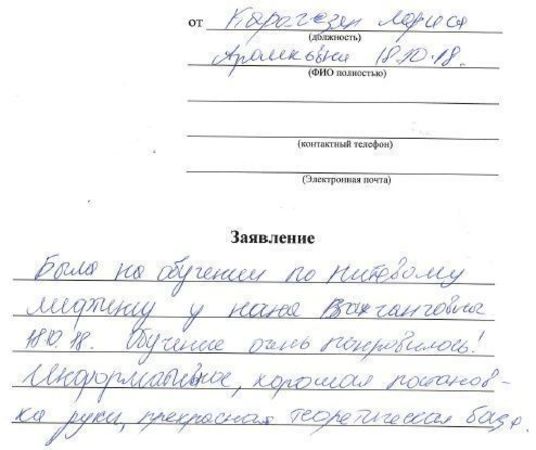 от Карагезян Лариса
(должность)
Арамовна 18.10.18.
(ФИО полностью)
(контактный телефон)
(Электронная почта)
Заявление
Была на обучении по нитевому
лифтингу у Нана Вахтанговны
18.10.18. Обучение очень понравилось!
Информативное, хорошая постанов-
ка руки, прекрасная теоретическая база.